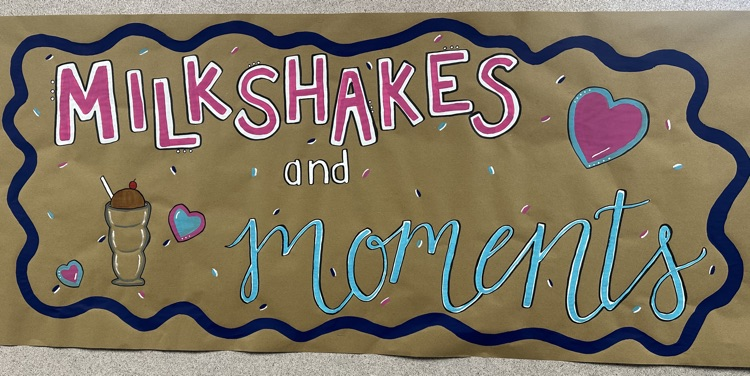 MILKSHAKES
and
moments